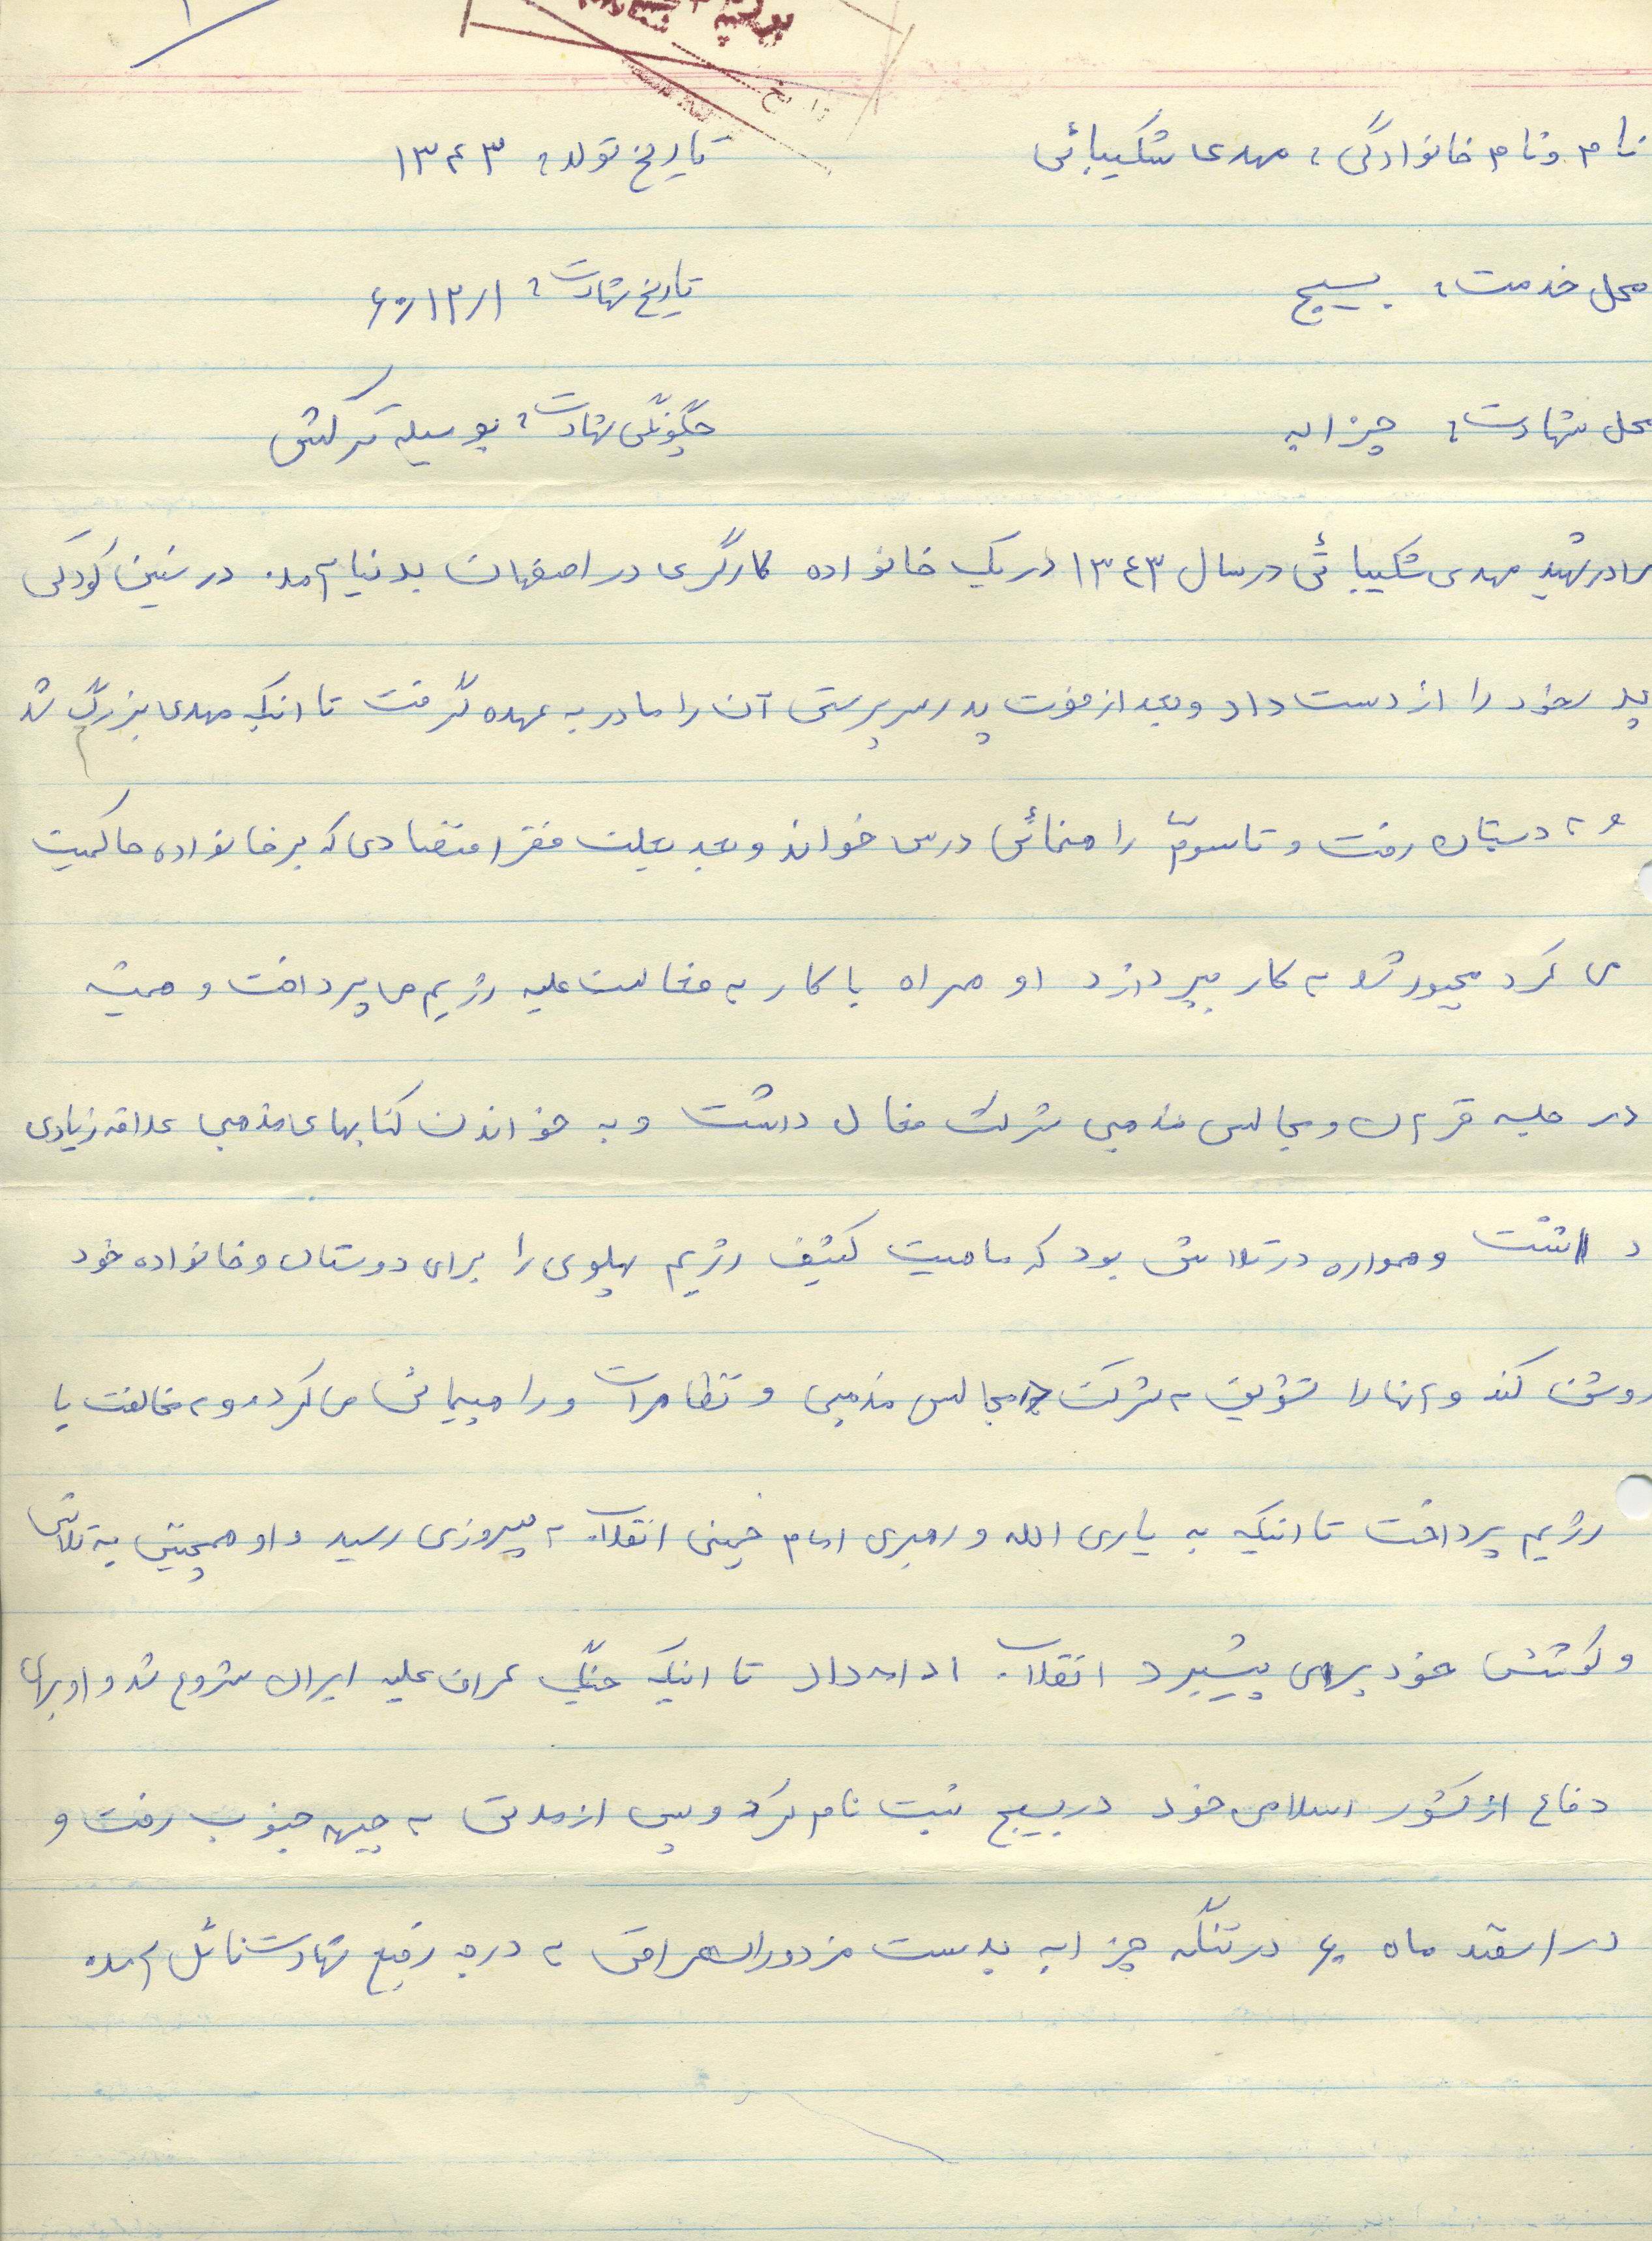 نام و نام خانوادگی: مهدی شکیبائی تاریخ تولد: ۱۳۴۳
محل خدمت: بسیج تاریخ شهادت: ۶۰/۱۲/۱
محل شهادت: چزابه چگونگی شهادت: بوسیله ترکش
برادر شهید مهدی شکیبائی در سال ۱۳٤۳ در یک خانواده کارگری در اصفهان بدنیا آمد. در سنین کودکی
پدر خود را از دست داد و بعد از فوت پدر سرپرستی آن را مادر به عهده گرفت تا اینکه مهدی بزرگ شد
و به دبستان رفت و تا سومّ راهنمائی درس خواند و بعد بعلت فقر اقتصادی که بر خانواده حاکمیت
می کرد مجبور شد به کار بپردازد او همراه با کار به فعالیت علیه رژیم می پرداخت و همیشه
در جلسه قرآن و مجالس مذهبی شرکت فعال داشت و به خواندن کتابهای مذهبی علاقه زیادی
داشت و همواره در تلاش بود که ماهیت کثیف رژیم پهلوی را برای دوستان و خانواده خود
روشن کند و آنها را تشویق به شرکت در مجالس مذهبی و تظاهرات و راهپیمائی می کرد و به مخالفت با
رژیم پرداخت تا اینکه به یاری الله و رهبری امام خمینی انقلاب به پیروزی رسید و او همچنین به تلاش
و کوشش خود برای پیشبرد انقلاب ادامه داد تا اینکه جنگ عراق علیه ایران شروع شد و او برای
دفاع از کشور اسلامی خود در بسیج ثبت نام کرد و پس از مدتی به جبهه جنوب رفت و
در اسفند ماه ۶۰ در تنگه چزابه بدست مزدوران عراقی به درجه رفیع شهادت نائل آمد.